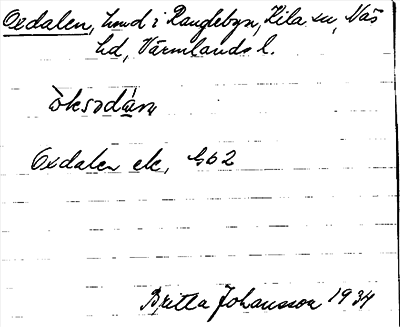 Oxdalen, hmd i Ranglebyn, Kila sn, Näs
hd, Värmlands l.
òksədàn
Oxdalen ek, Gb2
Britta Johansson 1934